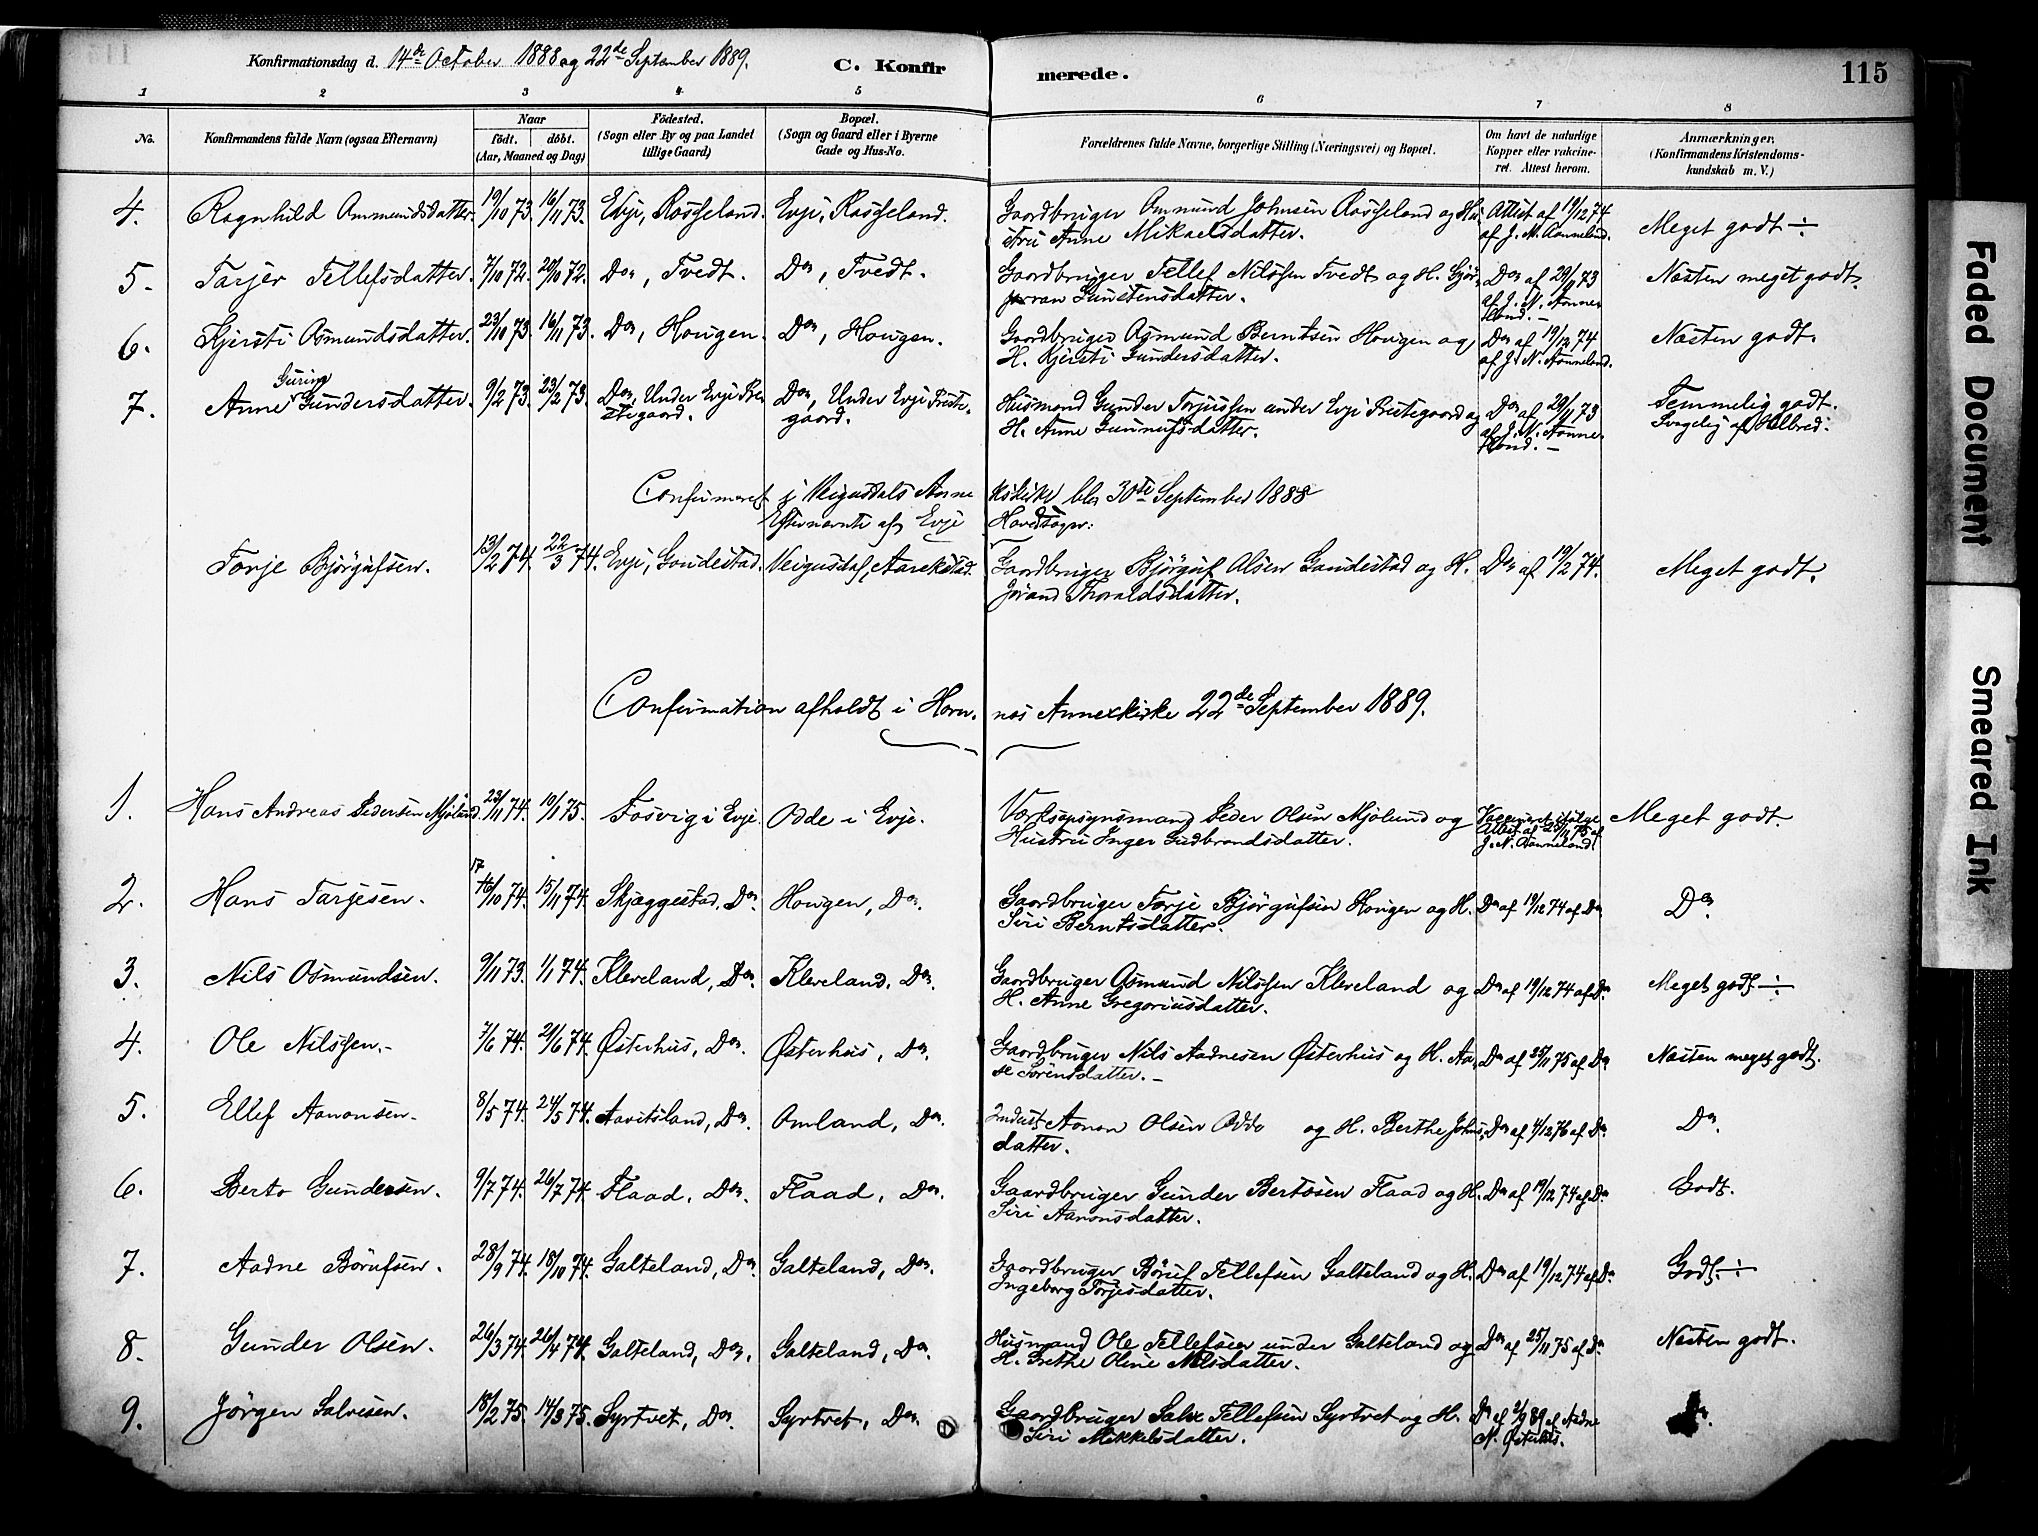 Konfirmationsdag d. 14de October 1888 og 22de September 1889.
C. Konfirmerede.
115
1 2 3 4 5 6 7 8
No.
Konfirmandens fulde Navn (ogsaa Efternavn)
Naar
født. døbt.
(Aar, Maaned og Dag)
Fødested.
(Sogn eller By og paa Landet
tillige Gaard)
Bopæl.
(Sogn og Gaard eller i Byerne
Gade og Hus-No.
Forældrenes fulde Navne, borgerlige Stilling (Næringsvei) og Bopæl.
Om havt de naturlige
Kopper eller vakcine-
ret. Attest herom.
Anmærkninger.
(Konfirmandens Kristendoms-
kundskab m. V.)
4. Ragnhild Ammundsdatter. 19/10 73. 16/11 73. Evje, Rosseland. Evje, Rosseland. Gaardbruger Ammund Johnsen Rosseland og Hu- Attest af 19/12 74 Meget godt ÷
stru Anne Mikaelsdatter. af J. N. Aanneland.
5. Tarjer Tellefsdatter. 7/10 72. 20/10 72. Do, Tvedt. Do, Tvedt. Gaardbruger Tellef Nilssen Tvedt og H. Gjør- Do af 29/11 73 Næsten meget godt.
Gunstensdatter. af J. N. Aanne-
land. –
6. Kjersti Osmundsdatter. 23/10 73. 16/11 73. Do, Hougen. Do, Hougen. Gaardbruger Osmund Berntsen Hougen og Do af 19/12 74 Næsten godt.
H. Kjersti Gundersdatter. af J. N. Aanneland.
7. Anne Guring Gundersdatter. 9/2 73. 23/2 73. Do, Under Evje Præ- Do, Under Evje Præste- Husmand Gunder Torjussen under Evje Præstegaard og Do af 29/11 73 Temmelig godt.
stegaard. gaard. H. Anne Gunnufsdatter. af J. N. Aanne- Svagelig af Helbred.
land. –
Confirmeret i Veigusdals Annexkirke blev 30te September 1888
Efternævnte af Evje Hovedsogn:
Torje Bjørgufsen. 13/2 74. 22/3 74. Evje, Gaudestad. Veigusdal, Aarekstad. Gaardbruger Bjørguf Olsen Gaudestad og H. Do af 19/12 74. Meget godt.
Jørand Thoraldsdatter.
Confirmation afholdt i Hornnes Annexkirke 22de September 1889.
1. Hans Andreas Pedersen Mjølund. 23/11 74. 10/1 75. Fosvig i Evje. Odde i Evje. Værksopsynsmand Peder Olsen Mjølund og Vaccineret ifølge Meget godt.
Hustru Inger Gudbrandsdatter. Attest af 25/11 75 af
J. N. Aanneland.
2. Hans Tarjesen. 17/10 74. 15/11 74. Skjæggestad, Do. Hougen, Do. Gaardbruger Torje Bjørgufsen Hougen og H. Do af 19/12 74 af Do Do.
Siri Berntsdatter.
3. Nils Osmundsen. 9/11 73. 1/1 74. Kleveland, Do. Kleveland, Do. Gaardbruger Osmund Nilssen Kleveland og Do af 19/12 74 af Do. Meget godt ÷
H. Anne Gregoriusdatter.
4. Ole Nilssen. – 7/6 74. 21/6 74. Østerhus, Do. Østerhus, Do. Gaardbruger Nils Aadnesen Østerhus og H. Aa- Do af 25/11 75 af Do Næsten meget godt.
se Sørensdatter. –
5. Ellef Aanonsen. 8/5 74. 24/5 74. Aavitsland, Do. Omland, Do. Indust Aanon Olsen Odde og H. Berthe Johns- Do af 4/12 76 af Do. Do.
datter.
6. Berto Gundersen. 9/7 74. 26/7 74. Flaad, Do. Flaad, Do. Gaardbruger Gunder Bertosen Flaad og H. Do af 19/12 74 af Do. Godt.
Siri Aanonsdatter.
7. Aadne Børufsen. 28/9 74. 18/10 74. Galteland, Do. Galteland, Do. Gaardbruger Børuf Tellefsen Galteland og H. Do af 19/12 74 af Do. Godt ÷
Ingeborg Torjesdatter.
8. Gunder Olsen. 26/3 74. 26/4 74. Galteland, Do. Galteland, Do. Husmand Ole Tellefsen under Galteland og Do af 25/11 75 af Do. Næsten godt.
H. Grethe Oline Nilsdatter.
9. Jørgen Salvesen. 18/2 75. 14/3 75. Syrtvet, Do. Syrtvet, Do. Gaardbruger Salve Tellefsen Syrtvet og H. Do af 2/9 89 af Aadne
Siri Mikkelsdatter. N. Østerhus.
Faded Document
Smeared Ink